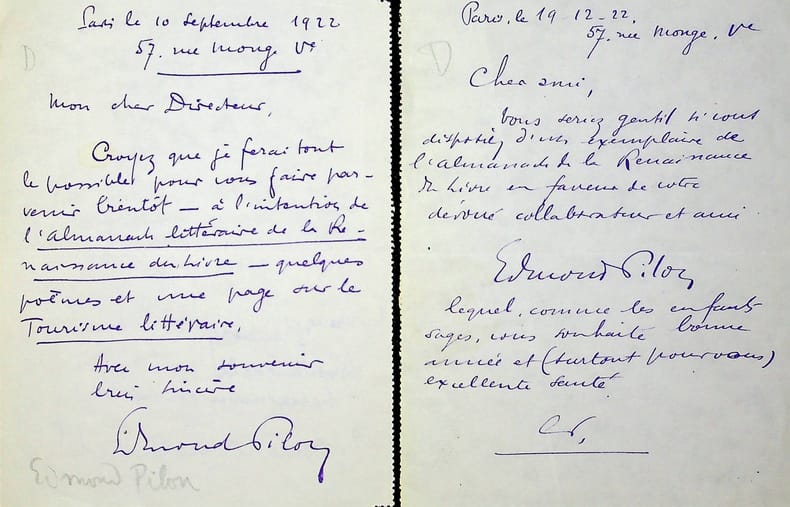 Paris le 10 septembre 1922
57. rue Monge Ve
D
Mon cher Directeur,
Croyez que je ferai tout
le possible pour vous faire par-
venir bientôt — à l'intention de
l'almanach littéraire de la Re-
naissance du Livre — quelques
poèmes et une page sur le
Tourisme littéraire.
Avec mon souvenir
bien sincère
Edmond Pilon
Edmond Pilon
Paris, le 19-12-22.
57. rue Monge. Ve
D
Cher ami,
Vous seriez gentil si vous
disposiez d'un exemplaire de
l'almanach de la Renaissance
du Livre en faveur de votre
dévoué collaborateur et ami
Edmond Pilon
lequel, comme les enfants
sages, vous souhaite bonne
année et (surtout pour vous)
excellente santé